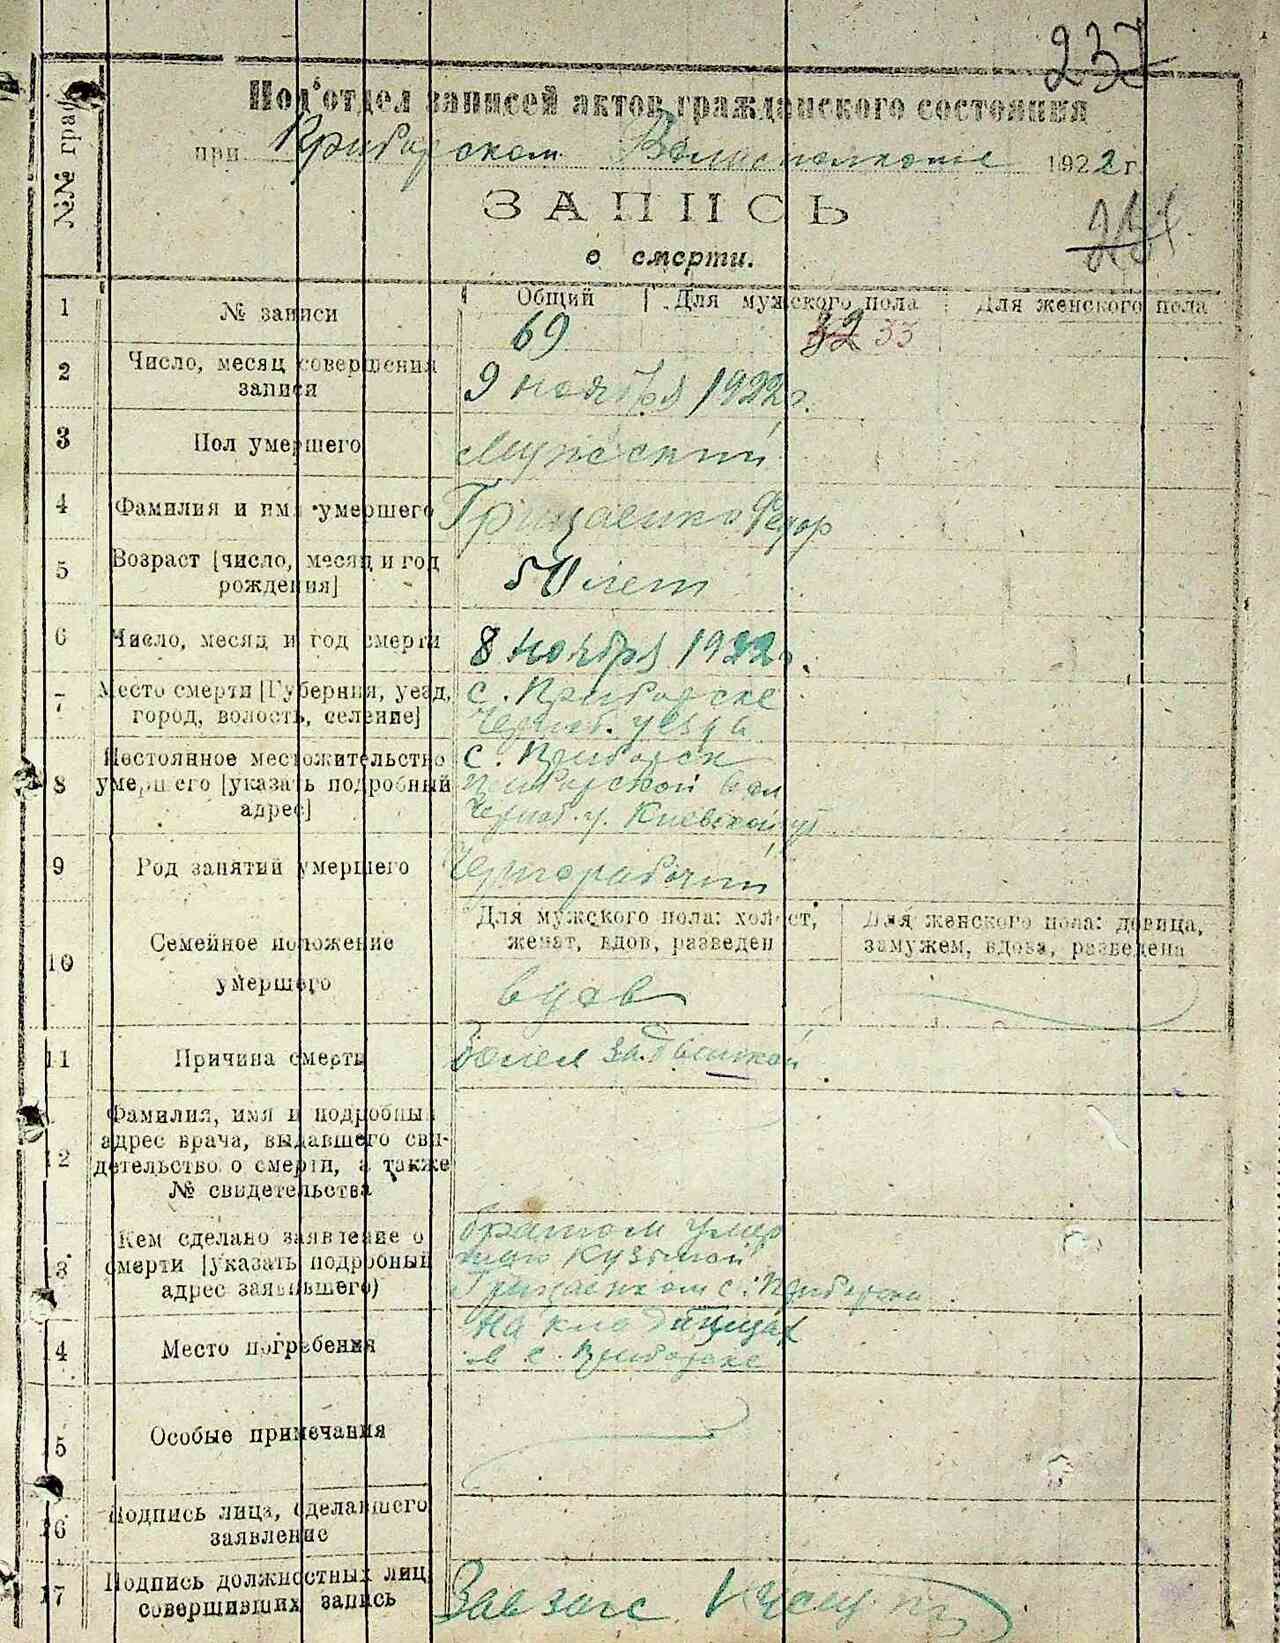 237
№№ граф
Под'отдел записей актов гражданского состояния
при Прибарском Волисполкоме 1922 г.
ЗАПИСЬ
о смерти.
1 № записи Общий Для мужского пола Для женского пола
69 32 33
2 Число, месяц совершения записи
9 ноября 1922 г.
3 Пол умершего Мужеский
4 Фамилия и имя умершего Грищаенко Федор
5 Возраст [число, месяц и год рождения]
50 лет
6 Число, месяц и год смерти 8 ноября 1922 г.
7 Место смерти [Губерния, уезд, город, волость, селение]
с. Прибарске
Черноб. уезда
8 Постоянное местожительство умершего [указать подробный адрес]
с. Прибарск
Прибарской вол
Черноб. у. Киевской губ
9 Род занятий умершего Чернорабочий
10 Семейное положение умершего
Для мужского пола: холост, женат, вдов, разведен
Для женского пола: девица, замужем, вдова, разведена
вдов
11 Причина смерти болел задышкой
12 Фамилия, имя и подробный адрес врача, выдавшего свидетельство о смерти, а также № свидетельства
13 Кем сделано заявление о смерти [указать подробный адрес заявившего)
братом умер
шаго Кузьмой
Грищаенком с. Прибарска
14 Место погребения
на кладбищах
в с. Прибарске
15 Особые примечания
16 Подпись лица, сделавшего заявление
17 Подпись должностных лиц совершивших запись
Завзагс